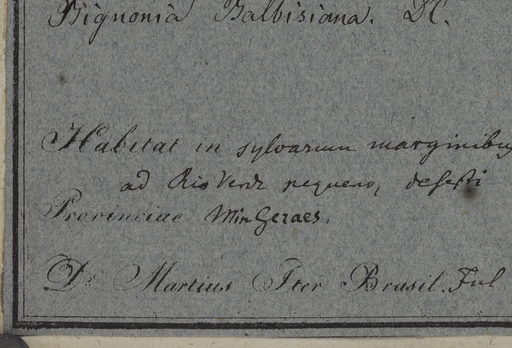 Bignonia Balbisiana. DC.
Habitat in sylvarum marginibus
ad Rio Verde pequeno, deserti
Provinciae Min Geraes.
Dr Martius Iter Brasil. Jul